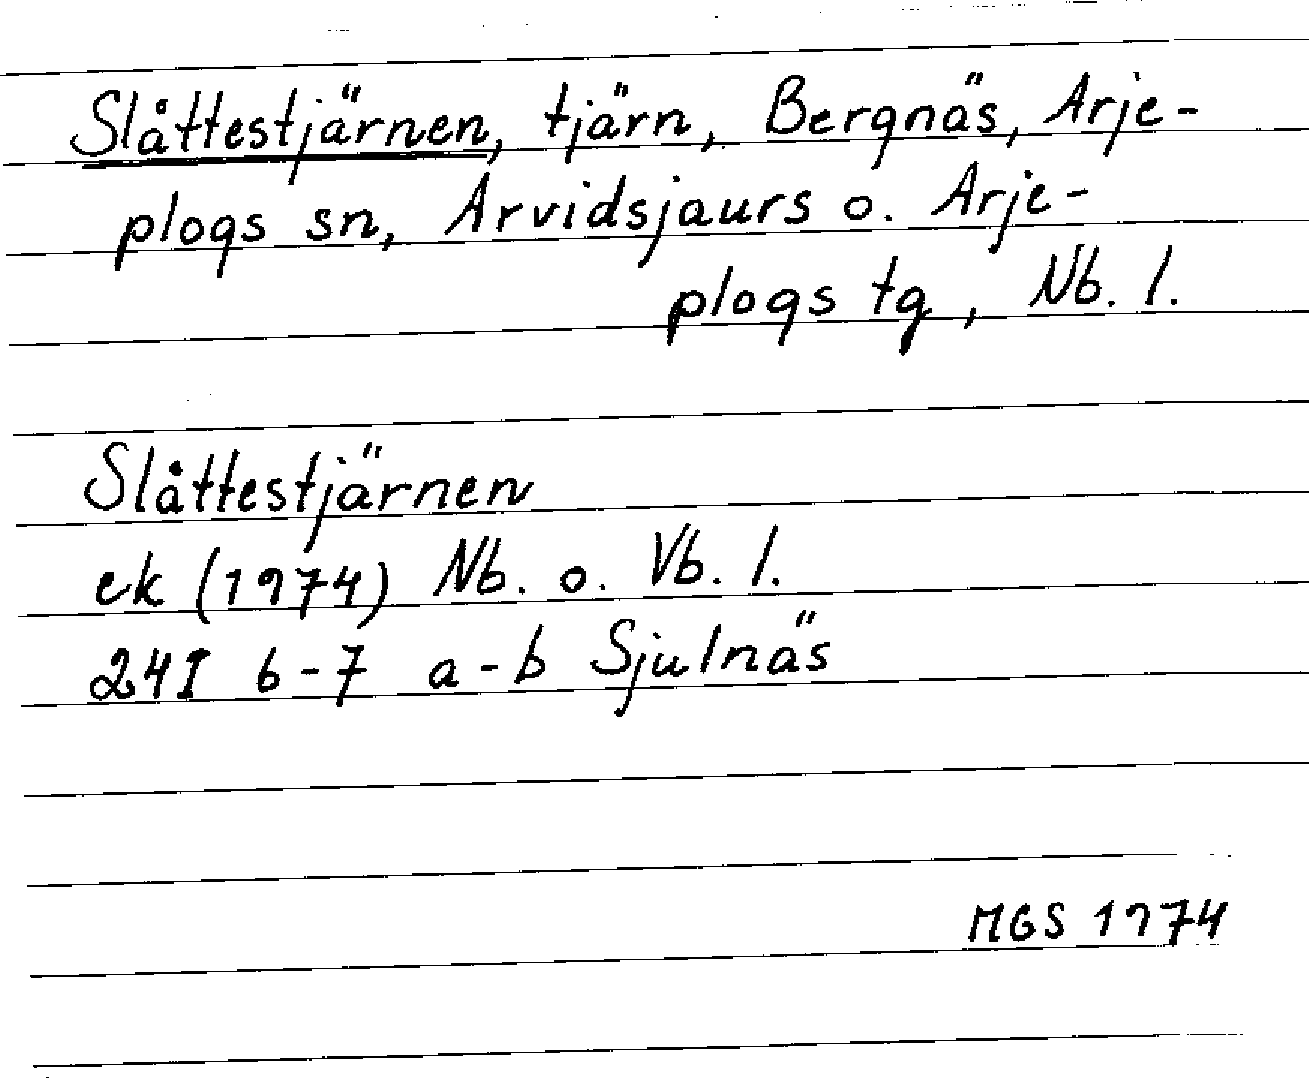 Slåttestjärnen, tjärn, Bergnäs, Arje-
plogs sn, Arvidsjaurs o. Arje-
plogs tg, Nb. l.
Slåttestjärnen
ek (1974) Nb. o. Vb. l.
24I 6-7 a-b Sjulnäs
MGS 1974